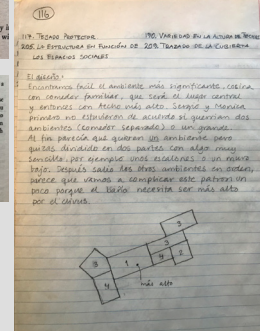 116
117. TECHO PROTECTOR 190. VARIEDAD EN LA ALTURA DE TECHOS
205. LA ESTRUCTURA EN FUNCIÓN DE 209. TRAZADO DE LA CUBIERTA
LOS ESPACIOS SOCIALES
El diseño:
Encontramos fácil el ambiente más significante, cocina
con comedor familiar, que será el lugar central
y entonces con techo más alto. Sergio y Monica
primero no estuvieron de acuerdo si querrían dos
ambientes (comedor separado) o un grande.
Al fin parecía que quieran un ambiente pero
quizas dividido en dos partes con algo muy
sencillo, por ejemplo unos escalones o un muro
bajo. Después salio los otros ambientes en orden,
parece que vamos a complicar este patron un
poco porque el baño necesita ser más alto
por el
3
3
3 1 4 2
4
más alto